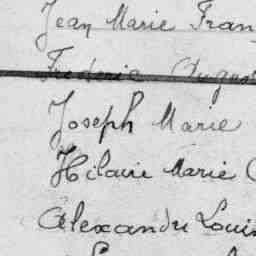 Jean Marie Fran
Frederic Augus
Joseph Marie
Hilaire Marie
Alexandre Louis